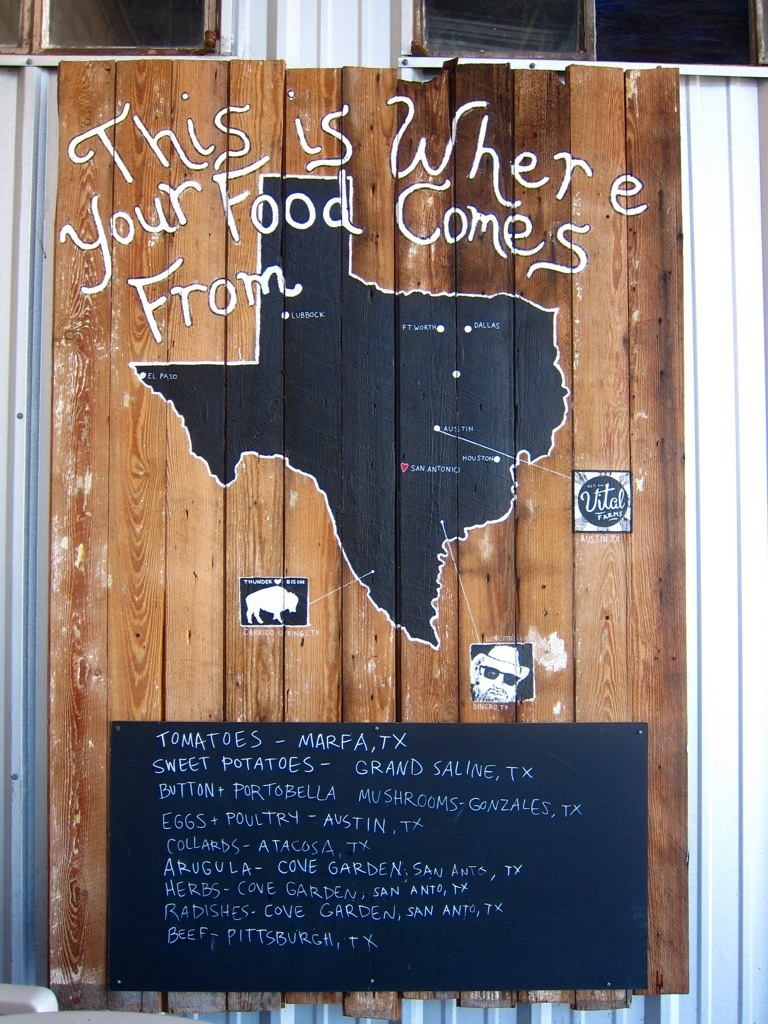 This is Where
your Food Comes
From
LUBBOCK
FT. WORTH
DALLAS
EL PASO
AUSTIN
SAN ANTONIO
HOUSTON
Vital
FARMS
AUSTIN, TX
THUNDER BISON
CARRIZO SPRINGS, TX
DINERO, TX
TOMATOES - MARFA, TX
SWEET POTATOES - GRAND SALINE, TX
BUTTON + PORTOBELLA MUSHROOMS - GONZALES, TX
EGGS + POULTRY - AUSTIN, TX
COLLARDS - ATACOSA, TX
ARUGULA - COVE GARDEN, SAN ANTO, TX
HERBS - COVE GARDEN, SAN ANTO, TX
RADISHES - COVE GARDEN, SAN ANTO, TX
BEEF - PITTSBURGH, TX